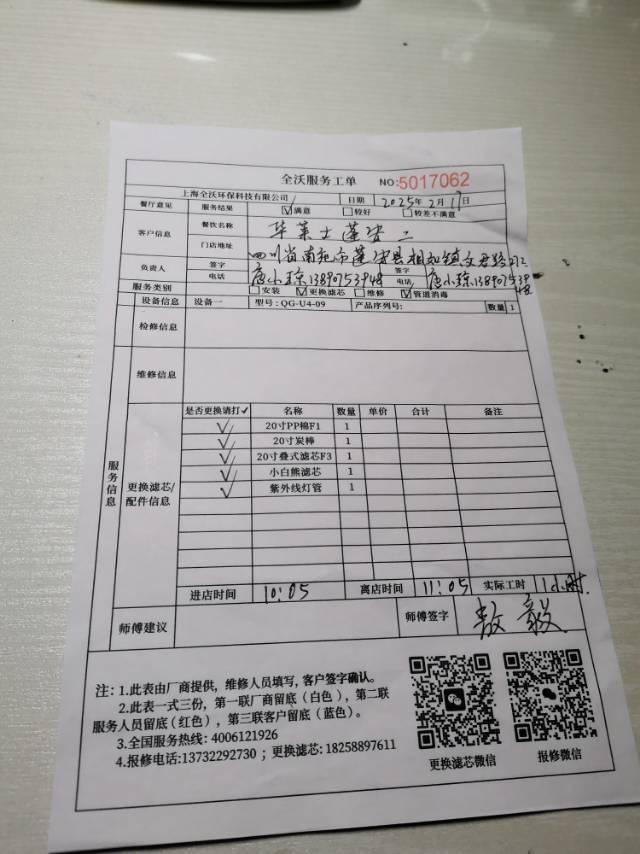 全沃服务工单 NO:5017062
上海全沃环保科技有限公司 日期 2025年2月17日
餐厅意见 服务结果 ☑满意 □较好 □较差不满意
客户信息 餐饮名称 华莱士蓬安二
门店地址 四川省南充市蓬安县相如镇文君路272
负责人 签字 唐小琼 签字 唐小琼
电话 13890753948 电话 13890753948
服务类别 □安装 ☑更换滤芯 □维修 ☑管道消毒
设备信息 设备一 型号:QG-U4-09 产品序列号: 数量 1
检修信息
维修信息
服务信息
更换滤芯/配件信息
是否更换请打✓ 名称 数量 单价 合计 备注
✓ 20寸PP棉F1 1
✓ 20寸炭棒 1
✓ 20寸叠式滤芯F3 1
✓ 小白熊滤芯 1
✓ 紫外线灯管 1
进店时间 10:05 离店时间 11:05 实际工时 1小时
师傅建议 师傅签字 敖毅
注:1.此表由厂商提供,维修人员填写,客户签字确认。
2.此表一式三份,第一联厂商留底(白色),第二联
服务人员留底(红色),第三联客户留底(蓝色)。
3.全国服务热线:4006121926
4.报修电话:13732292730;更换滤芯:18258897611
更换滤芯微信 报修微信